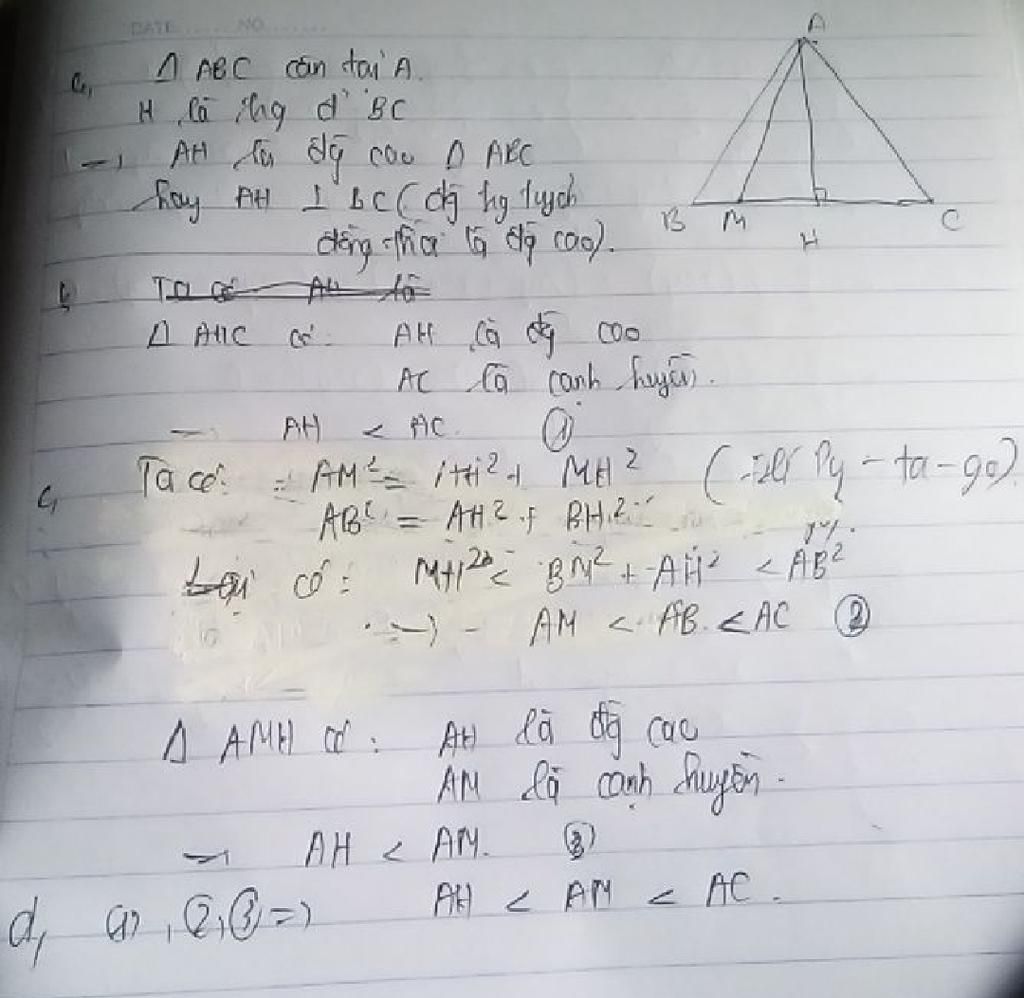 DATE ...... NO .......
a, Δ ABC cân tại A.
H là trung đ' BC
→ AH là đg cao Δ ABC
hay AH ⊥ BC (đg trg tuyến
đồng thời là đg cao).
A
B M H C
b, Ta có AH là
Δ AHC có: AH là đg cao
AC là cạnh huyền.
→ AH < AC. (1)
c, Ta có: AM² = AH² + MH² (Py-ta-go)
AB² = AH² + BH²
Lại có: MH² < + AH² < AB²
→ AM < AB < AC (2)
Δ AMH có: AH là đg cao
AM là cạnh huyền.
→ AH < AM. (3)
d, (1), (2), (3) => AH < AM < AC.